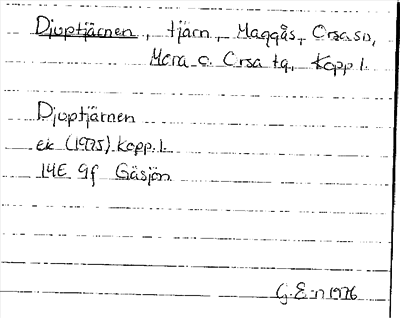 Djuptjärnen, tjärn, Maggås, Orsa sn,
Mora o. Orsa tg, Kopp l.
Djuptjärnen
ek (1975) Kopp. l.
14E 9f Gåsjön
G. E-n 1976